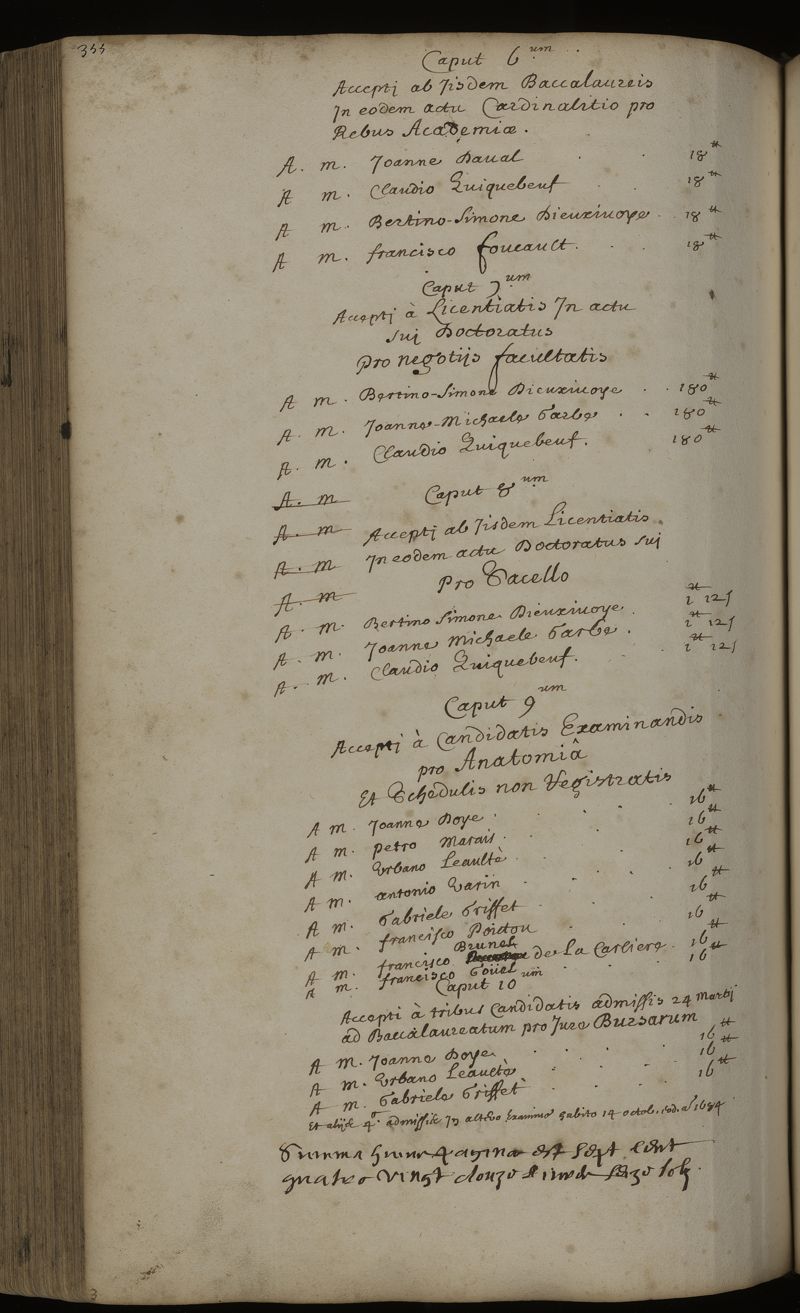 355
Caput 6um
Accepti ab Iisdem Baccalaureis
In eodem actu Cardinalitio pro
Rebus Academiæ.
A. m. Joanne Daval . . 18tt
A m. Claudio Quiquebeuf . . 18tt
A m. Bertino-Simone Dieuxivoye . 18tt
A m. francisco foucault . . . 18tt
Caput 7um
Accepti à Licentiatis In actu
sui Doctoratus
pro negotijs facultatis
A m. Bertino-Simone Dieuxivoye . . 180tt
A. m. Joanne-Michaele Garbe . . 180tt
A. m. Claudio Quiquebeuf. 180tt
A. m Caput 8um
A. m Accepti ab Iisdem Licentiatis
A. m In eodem actu Doctoratus sui
A. m pro Sacello
A. m. Bertino Simone Dieuxivoye . 1tt 12s
A. m. Joanne Michaele Garbe . 1tt 12s
A. m. Claudio Quiquebeuf. . 1tt 12s
Caput 9um
Accepti à Candidatis Examinandis
pro Anatomiâ
Et Schedulis non Registratis
A m. Joanne Doye . . 16tt
A m. petro Marais . . 16tt
A m. Urbano Leaulté . . 16tt
A m. antonio Varin . . 16tt
A m. Gabriele Griffet . . 16tt
A m. francisco Poictou . 16tt
A m. francisco Brunel de La Carliere . 16tt
A m. francisco Goüel . . 16tt
Caput 10um
Accepti à tribus Candidatis admissis 24 Martij
ad Baccalaureatum pro Jure Bursarum
A m. Joanne Doye . . 16tt
A m. Urbano Leaulté . . 16tt
A m. Gabriele Griffet . . 16tt
Et alijs 4or admissis In altero Examine habito 14 octob. eod. a° 1684
Summa huius paginæ est sept cent
quatre vingt douze livres seze solz.